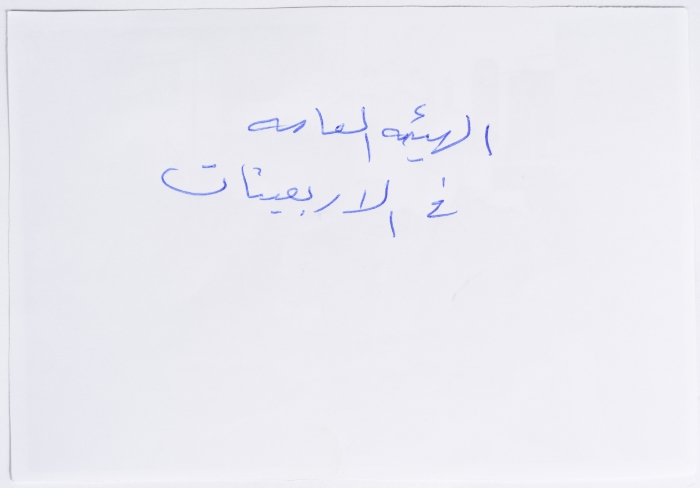 الهيئه العامه
في الاربعينات